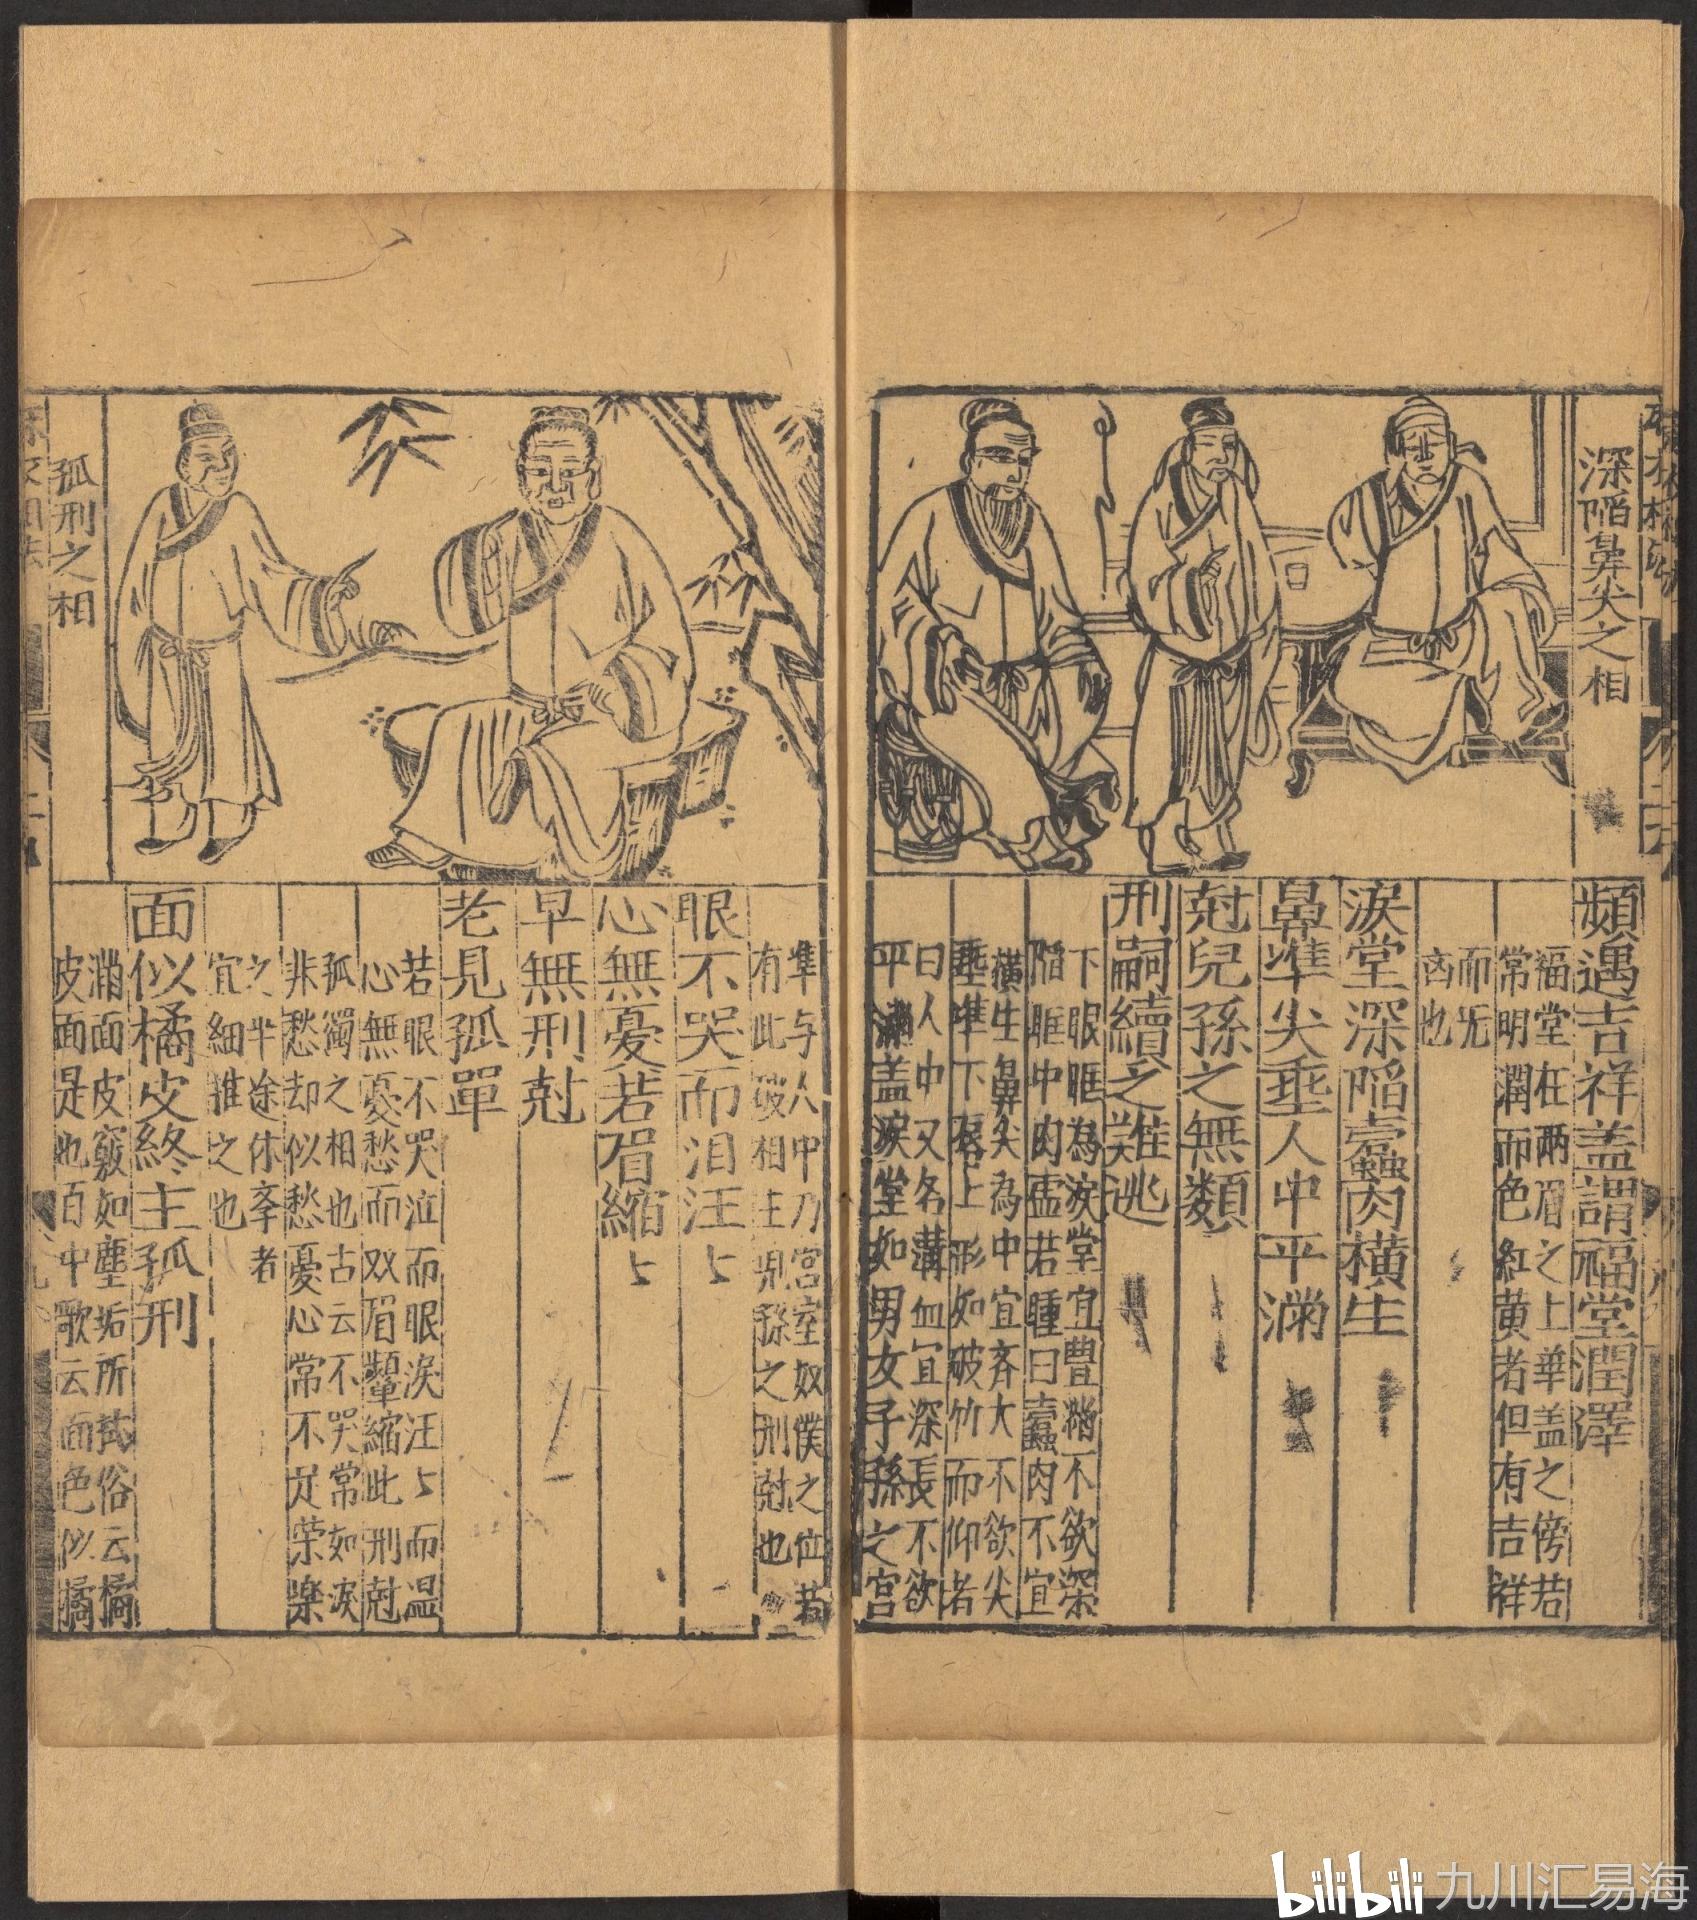 深陷鼻尖之相
頻遇吉祥蓋謂福堂潤澤
福堂在兩眉之上華盖之傍若
常明潤而色紅黄者但有吉祥
而旡
㐫也
淚堂深陷蠧肉横生
鼻準尖垂人中平滿
尅兒孫之無類
刑嗣續之難逃
下眼眶為淚堂宜豐滿不欲深
陷眶中肉盛若腫曰蠧肉不宜
横生鼻尖為中宜齐大不欲尖
垂準下唇上形如破竹而仰者
曰人中又名溝血宜深長不欲
平滿盖淚堂如男女子孫之宫
準与人中乃宫室奴僕之位若
有此破相主児孫之刑尅也
眼不哭而泪汪々
心無憂若眉縮々
早無刑尅
老見孤單
若眼不哭泣而眼淚汪々而温
心無憂愁而双眉顰縮此刑尅
孤獨之相也古云不哭常如淚
非愁却似愁憂心常不足荣樂
之半途休李者
宜細推之也
面似橘皮終主孤刑
滿面皮竅如塵垢所拭俗云橘
皮面是也百中歌云面色似橘
孤刑之相
bilibili 九川汇易海